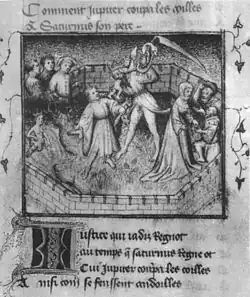 Comment Jupiter coupa les coilles
A Saturnus son pere
Iustice qui iadiz regnot
au temps q̃ saturnus regne ot
Cui Jupiter coupa les coilles
Ainsi com se feussent andoilles